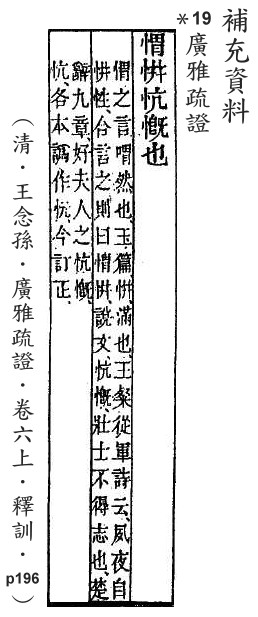 補充資料
*19
廣雅疏證
㥜恲忼慨也
㥜之言喟然也、玉篇、恲、滿也、王粲從軍詩云、夙夜自
恲性、合言之則曰㥜恲、說文、忼慨、壯士不得志也、楚
辭九章、好夫人之忼慨、
忼、各本譌作 今訂正、
（清．王念孫．廣雅疏證．卷六上．釋訓．p196）